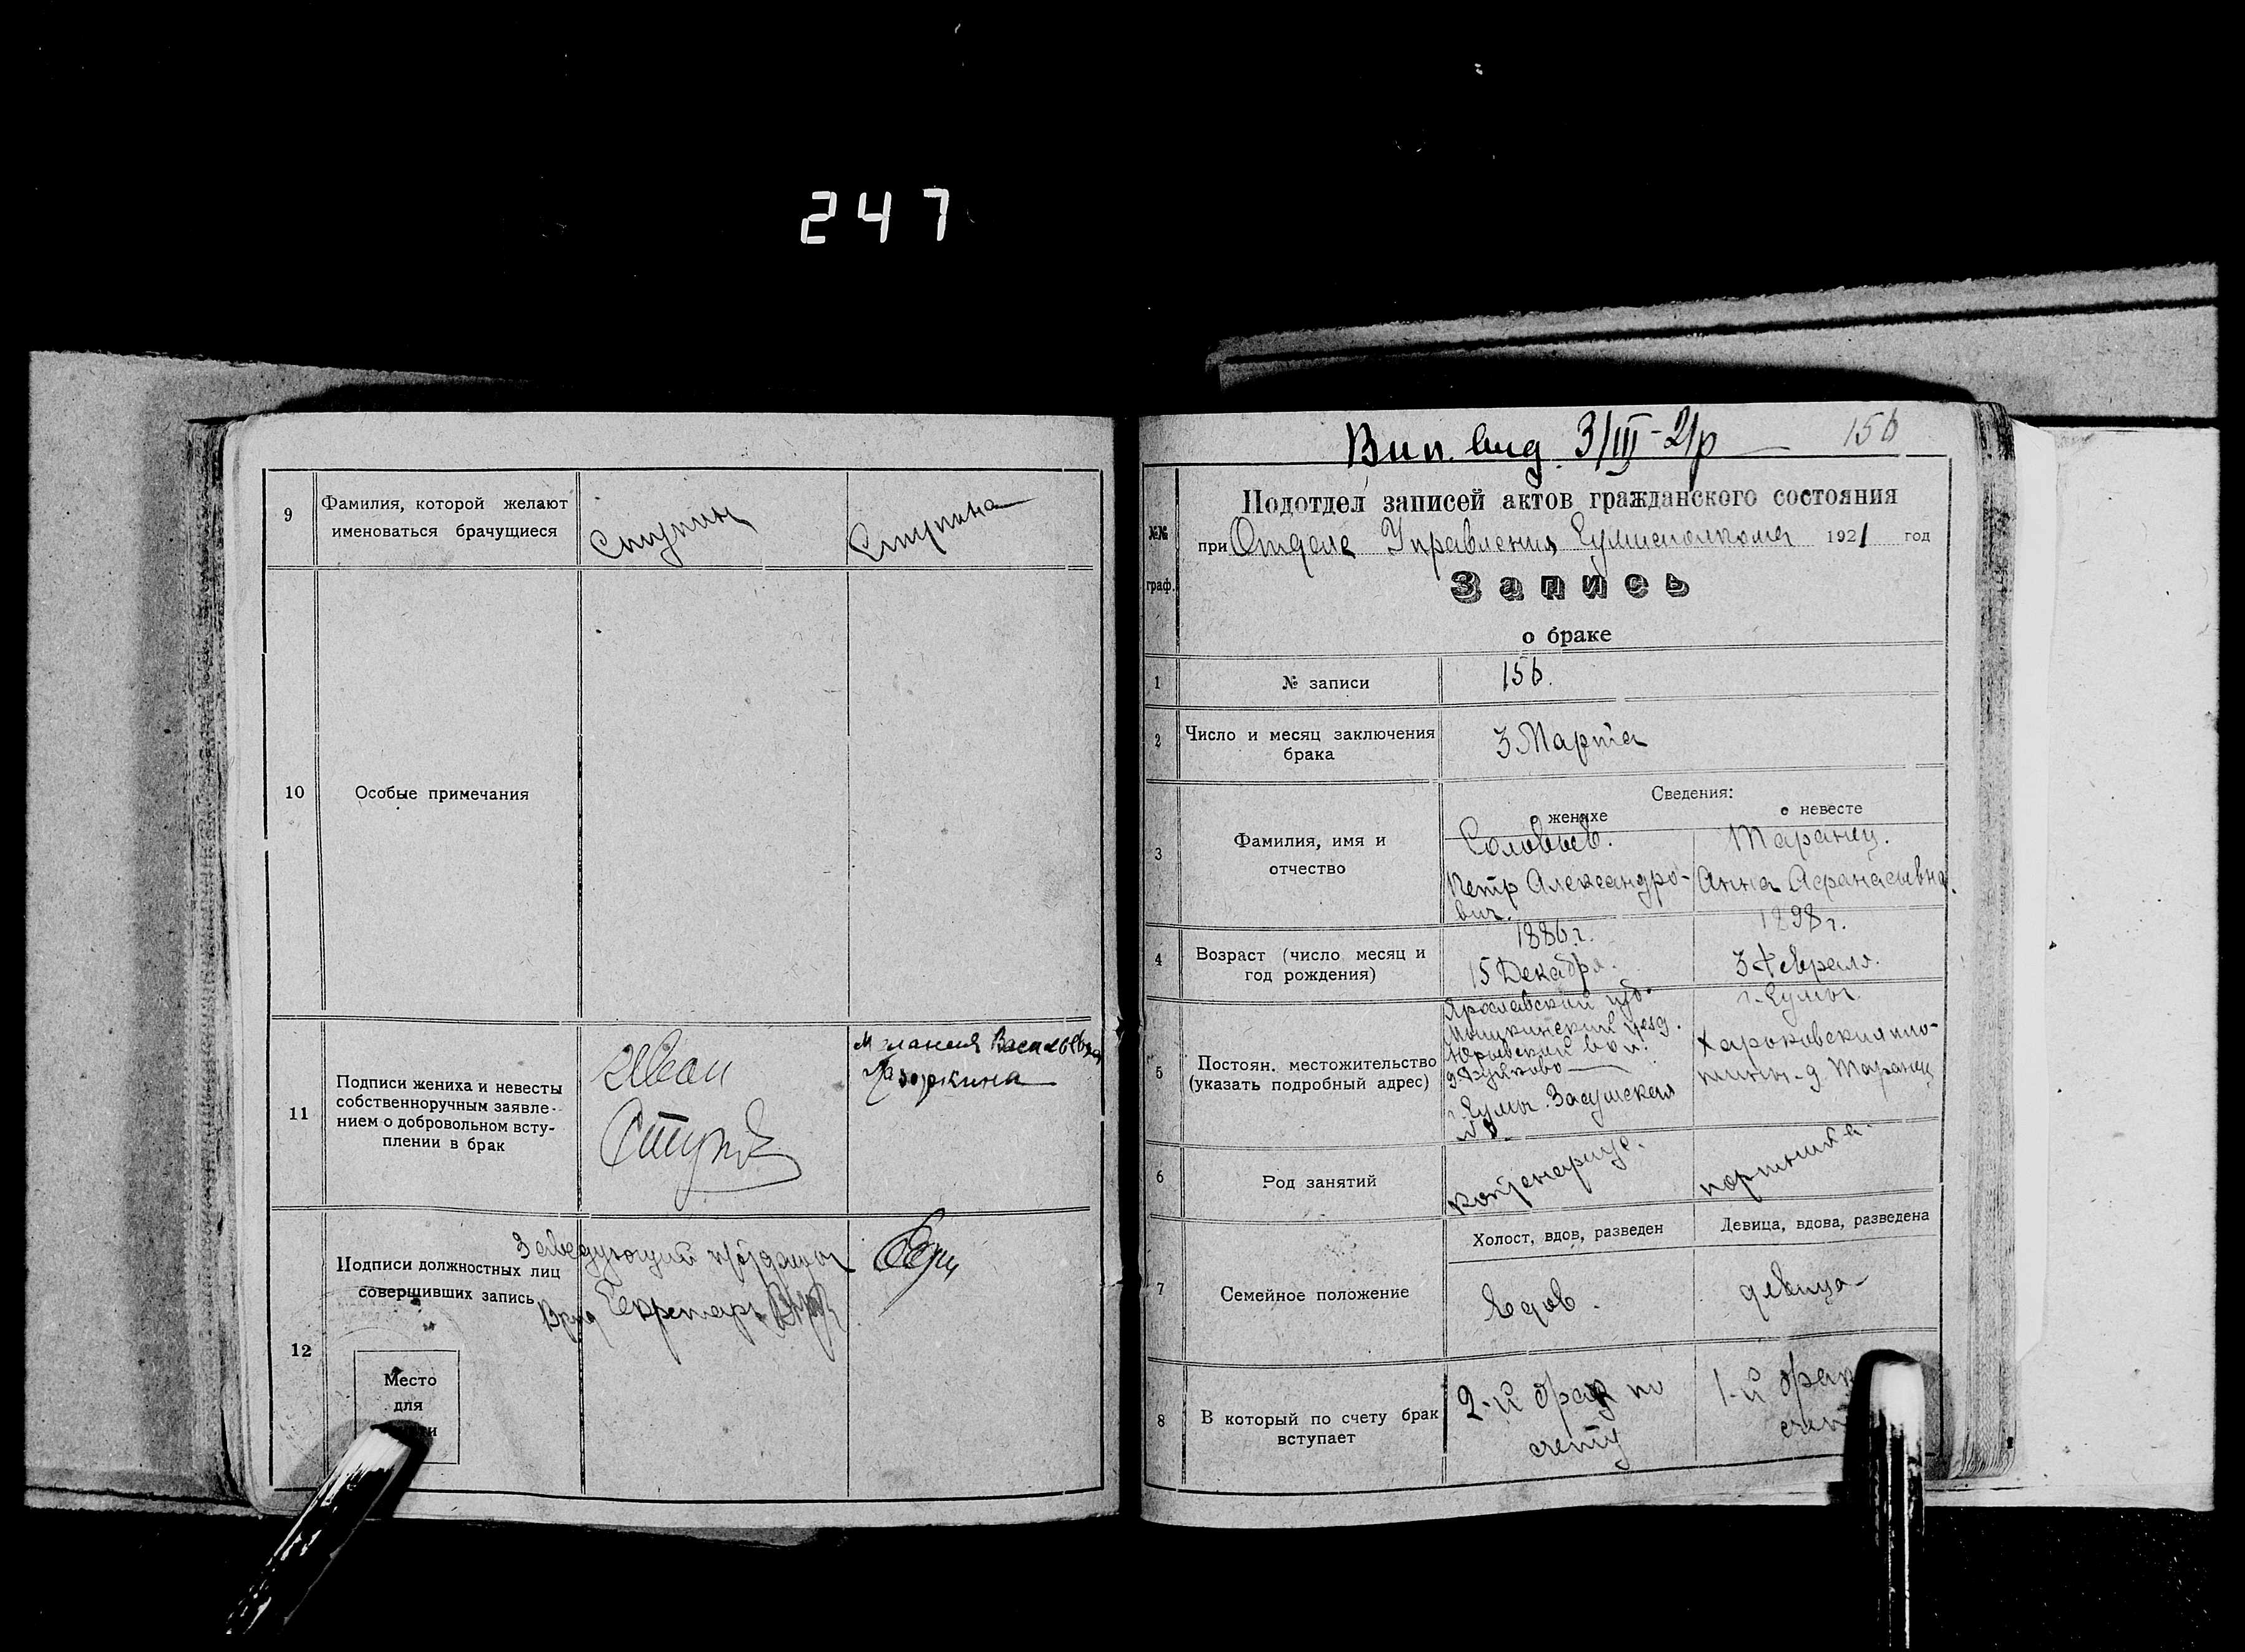 247
9
Фамилия, которой желают
именоваться брачущиеся
Ступин
Ступина
10
Особые примечания
11
Подписи жениха и невесты
собственноручным заявле-
нием о добровольном всту-
плении в брак
Иван
Мелания Васильевна
12
Подписи должностных лиц
совершивших запись
Заведующий
Секретарь
Место
для
Вип. вид. 3/III-21р
156
№№
граф.
Подотдел записей актов гражданского состояния
при Отделе Управления Сумисполкома 1921 год
Запись
о браке
1
№ записи
156.
2
Число и месяц заключения
брака
3 Марта
Сведения:
о женихе
о невесте
3
Фамилия, имя и
отчество
Соловьев.
Петр Александро-
вич.
Таранец.
Анна Афанасьевна.
4
Возраст (число месяц и
год рождения)
1886 г.
15 Декабря.
1898 г.
3 Февраля.
5
Постоян. местожительство
(указать подробный адрес)
Ярославский губ.
Мышкинский уезд.
Юрьевской вол.
г. Сумы. Засумская
г. Сумы
Харьковская
д. Таранец
6
Род занятий
портниха.
7
Семейное положение
Холост, вдов, разведен
Девица, вдова, разведена
Вдов.
девица
8
В который по счету брак
вступает
2-й брак по
счету
1-й брак